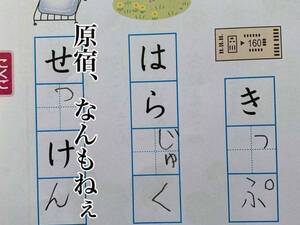 こくご
160
きっぷ
はらじゅく
せっけん
原宿、なんもねぇ